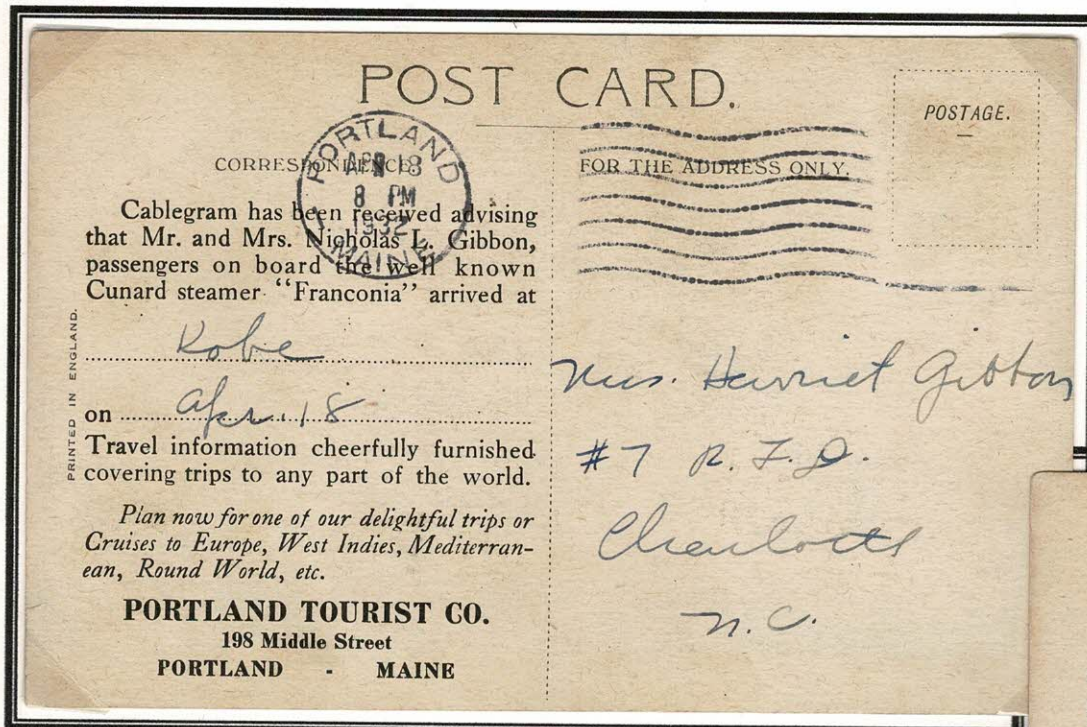 POST CARD.
POSTAGE.
CORRESPONDENCE
FOR THE ADDRESS ONLY.
PORTLAND
APR 18
8 PM
1932
MAINE
Cablegram has been received advising
that Mr. and Mrs. Nicholas L. Gibbon,
passengers on board the well known
Cunard steamer "Franconia" arrived at
Kobe
on Apr. 18
Travel information cheerfully furnished
covering trips to any part of the world.
Plan now for one of our delightful trips or
Cruises to Europe, West Indies, Mediterran-
ean, Round World, etc.
PORTLAND TOURIST CO.
198 Middle Street
PORTLAND - MAINE
PRINTED IN ENGLAND.
Mrs. Harriet Gibbon
#7 R.F.D.
Charlotte
N.C.